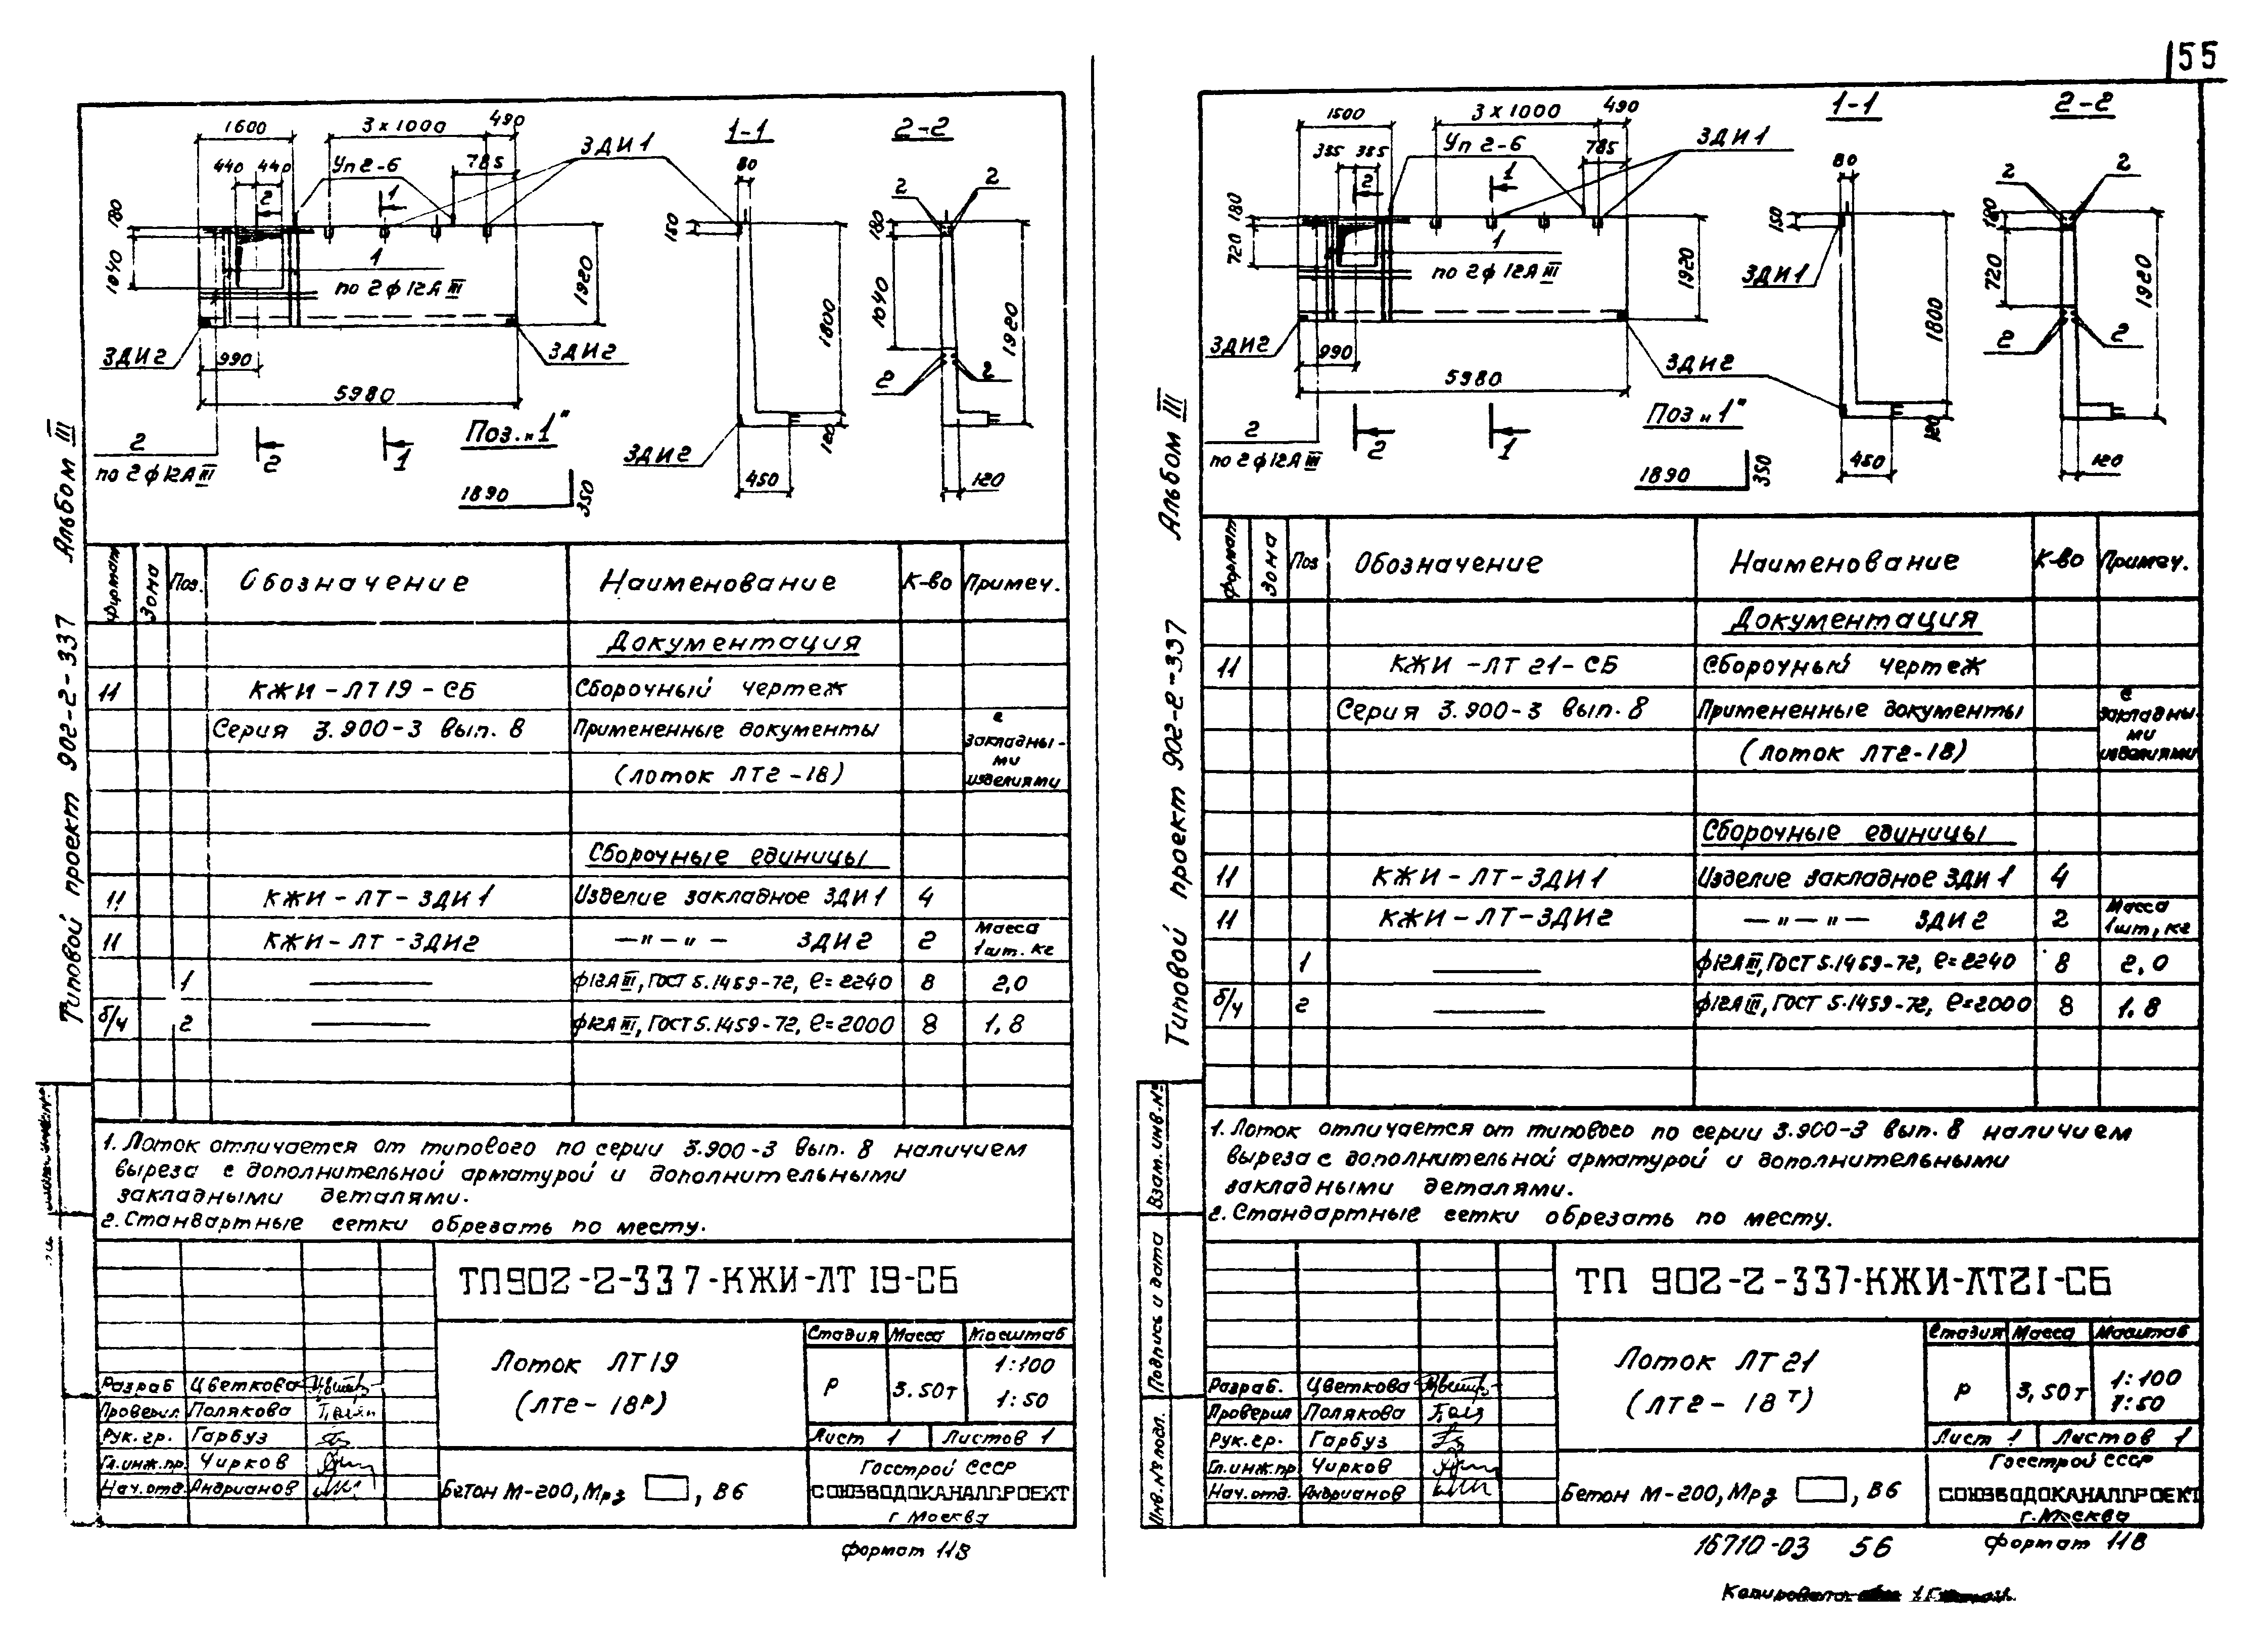 155
1600
3 х 1000
490
ЗДИ 1
1-1
2-2
440 440
Уп 2-6
785
80
2
2
1
2
180
1040
1
по 2 ф 12А III
1920
150
1800
120
180
1040
1920
2
2
ЗДИ 2
990
ЗДИ 2
5980
2
по 2 ф 12А III
2
1
Поз. „1"
1890
350
ЗДИ 2
450
120
Типовой проект 902-2-337 Альбом III
Формат Зона Поз. Обозначение Наименование К-во Примеч.
Документация
11 КЖИ-ЛТ19-СБ Сборочный чертеж
Серия 3.900-3 вып. 8 Примененные документы с
закладны-
ми
(лоток ЛТ2-18) изделиями
Сборочные единицы
11 КЖИ-ЛТ-ЗДИ 1 Изделие закладное ЗДИ 1 4
11 КЖИ-ЛТ-ЗДИ2 —"—"— ЗДИ 2 2 Масса
1шт. кг
1 ф12А III, ГОСТ 5.1459-72, ℓ=2240 8 2,0
б/ч 2 ф12А III, ГОСТ 5.1459-72, ℓ=2000 8 1.8
1. Лоток отличается от типового по серии 3.900-3 вып. 8 наличием
выреза с дополнительной арматурой и дополнительными
закладными деталями.
2. Стандартные сетки обрезать по месту.
ТП902-2-337-КЖИ-ЛТ 19-СБ
Лоток ЛТ19
(ЛТ2-18р)
Стадия Масса Масштаб
Р 3.50т 1:100
1:50
Лист 1 Листов 1
Разраб Цветкова
Проверил Полякова
Рук. гр. Гарбуз
Гл.инж.пр. Чирков
Нач.отд. Андрианов
Бетон М-200, Мрз , В6
Госстрой СССР
СОЮЗВОДОКАНАЛПРОЕКТ
г. Москва
формат 11В
1500
3 х 1000
490
ЗДИ 1
1-1
2-2
385 385
Уп 2-6
785
80
2
2
1
2
180
720
1
по 2 ф 12А III
1920
150
ЗДИ 1
1800
120
180
720
1920
2
2
ЗДИ2
990
ЗДИ 2
5980
2
по 2 ф 12А III
2
1
Поз „1"
1890
350
450
120
Типовой проект 902-2-337 Альбом III
Формат Зона Поз Обозначение Наименование К-во Примеч.
Документация
11 КЖИ-ЛТ 21-СБ Сборочный чертеж
Серия 3.900-3 вып. 8 Примененные документы с
закладны-
ми
(лоток ЛТ2-18) изделиями
Сборочные единицы
11 КЖИ-ЛТ-ЗДИ 1 Изделие закладное ЗДИ 1 4
11 КЖИ-ЛТ-ЗДИ2 —"—"— ЗДИ 2 2 Масса
1шт, кг
1 ф12А III, ГОСТ 5.1459-72, ℓ=2240 8 2,0
б/ч 2 ф12А III, ГОСТ 5.1459-72, ℓ=2000 8 1.8
1. Лоток отличается от типового по серии 3.900-3 вып. 8 наличием
выреза с дополнительной арматурой и дополнительными
закладными деталями.
2. Стандартные сетки обрезать по месту.
Взам. инв. №
Подпись и дата
Инв. № подл.
ТП 902-2-337-КЖИ-ЛТ21-СБ
Лоток ЛТ21
(ЛТ2-18т)
Стадия Масса Масштаб
Р 3,50т 1:100
1:50
Лист 1 Листов 1
Разраб. Цветкова
Проверил Полякова
Рук. гр. Гарбуз
Гл.инж.пр Чирков
Нач.отд. Андрианов
Бетон М-200, Мрз , В6
Госстрой СССР
СОЮЗВОДОКАНАЛПРОЕКТ
г. Москва
16710-03 56
формат 11В